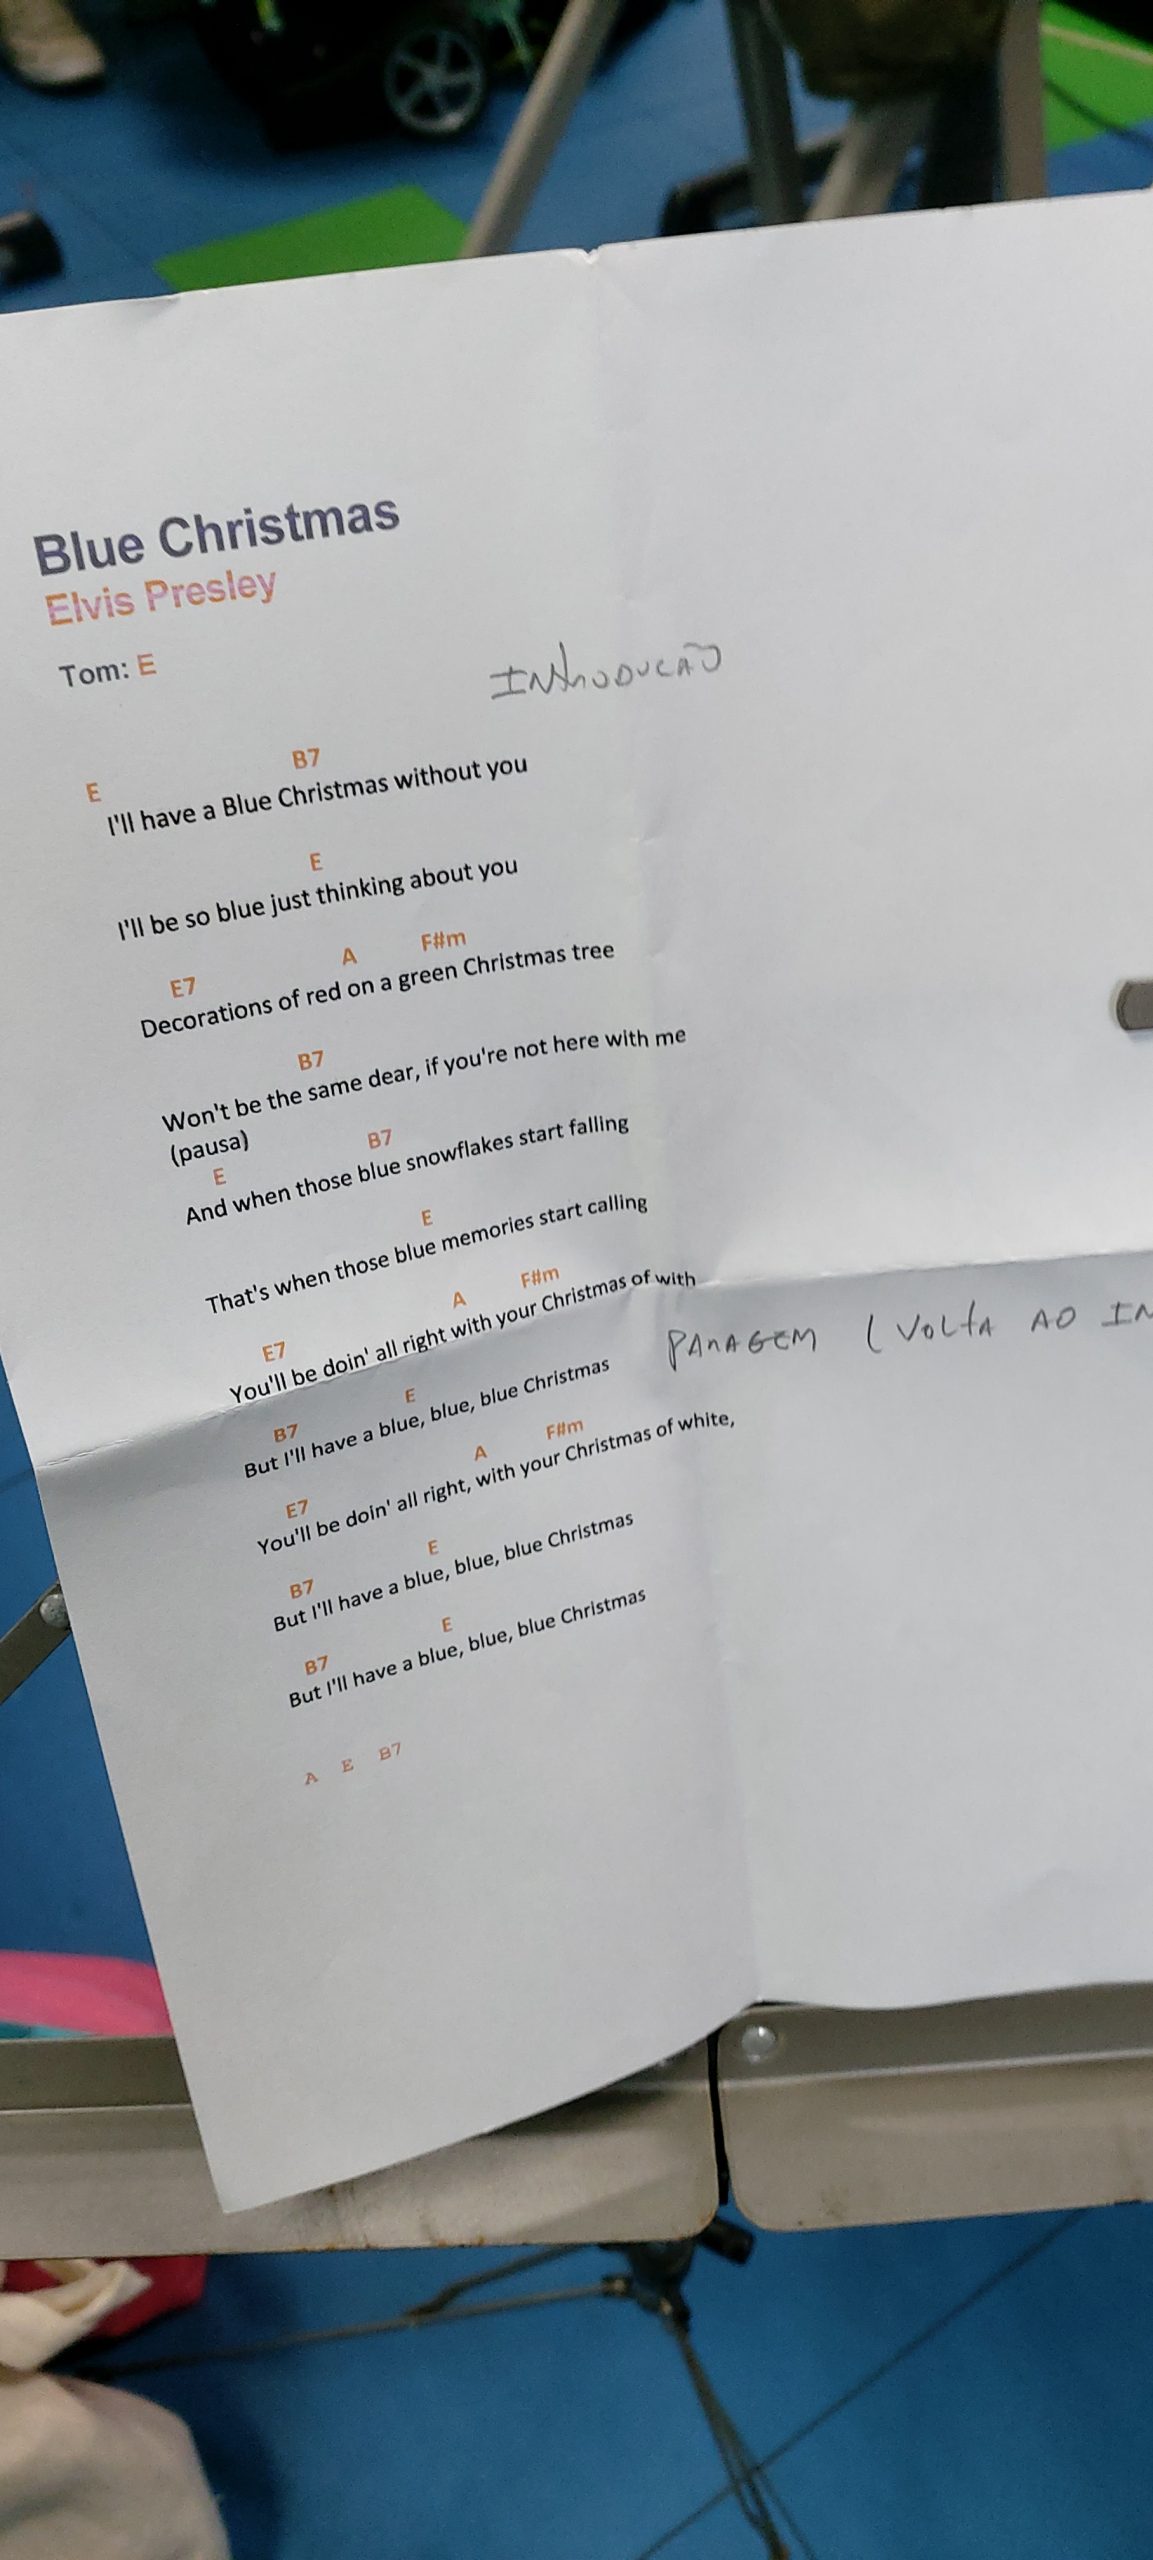 Blue Christmas
Elvis Presley
Tom: E
INTRODUCÃO
E B7
I'll have a Blue Christmas without you
E
I'll be so blue just thinking about you
E7 A F#m
Decorations of red on a green Christmas tree
B7
Won't be the same dear, if you're not here with me
(pausa)
E B7
And when those blue snowflakes start falling
E
That's when those blue memories start calling
E7 A F#m
You'll be doin' all right with your Christmas of with
B7 E
But I'll have a blue, blue, blue Christmas PARAGEM (VOLTA AO IN
E7 A F#m
You'll be doin' all right, with your Christmas of white,
B7 E
But I'll have a blue, blue, blue Christmas
B7 E
But I'll have a blue, blue, blue Christmas
A E B7